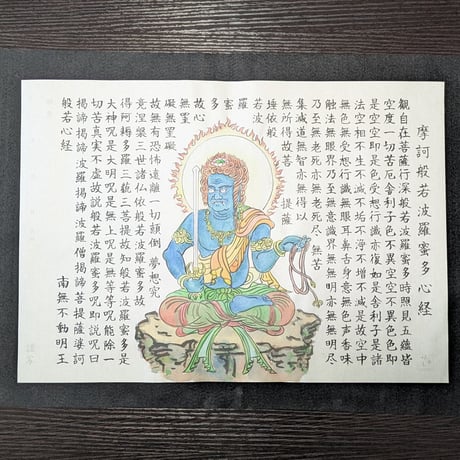 摩訶般若波羅蜜多心経
観自在菩薩行深般若波羅蜜多時照見五蘊皆
空度一切苦厄舎利子色不異空空不異色色即
是空空即是色受想行識亦復如是舎利子是諸
法空相不生不滅不垢不浄不増不減是故空中
無色無受想行識無眼耳鼻舌身意無色声香味
触法無眼界乃至無意識界無無明亦無無明尽
乃至無老死亦無老死尽 無苦
集滅道無智亦無得以
無所得故菩 提薩
埵依般
若波
羅
蜜
多
故心
無罣
礙無罣礙
故無有恐怖遠離一切顛倒 夢想究
竟涅槃三世諸仏依般若波羅蜜多故
得阿耨多羅三藐三菩提故知般若波羅蜜多是
大神呪是大明呪是無上呪是無等等呪能除一
切苦真実不虚故説般若波羅蜜多呪即説呪曰
揭諦揭諦波羅揭諦波羅僧揭諦菩提薩婆訶
般若心経 南無不動明王